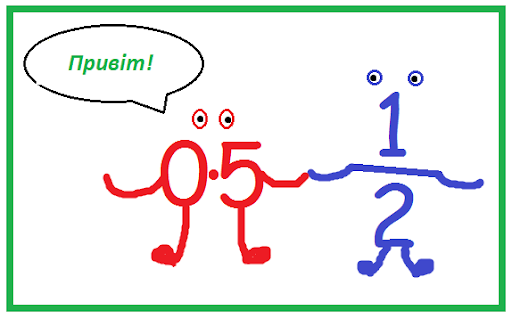 Привіт!
0.5
1
2